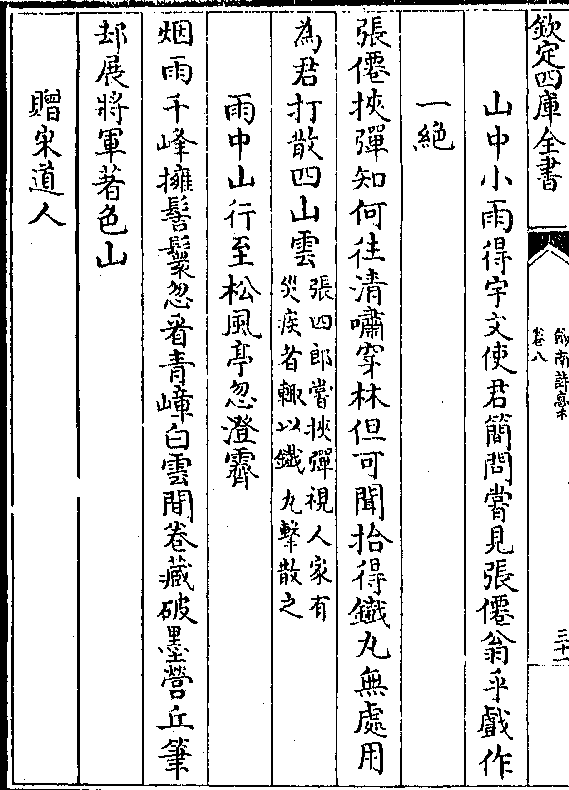 欽定四庫全書
劒南詩藁
卷八
三十一
山中小雨得宇文使君簡問嘗見張僊翁乎戲作
一絶
張僊挾彈知何往清嘯穿林但可聞拾得鐵丸無處用
為君打散四山雲
張四郎嘗挾彈視人家有
災疾者輙以鐵丸擊散之
雨中山行至松風亭忽澄霽
烟雨千峰擁髻鬟忽看青嶂白雲間卷藏破墨營丘筆
却展將軍著色山
贈宋道人